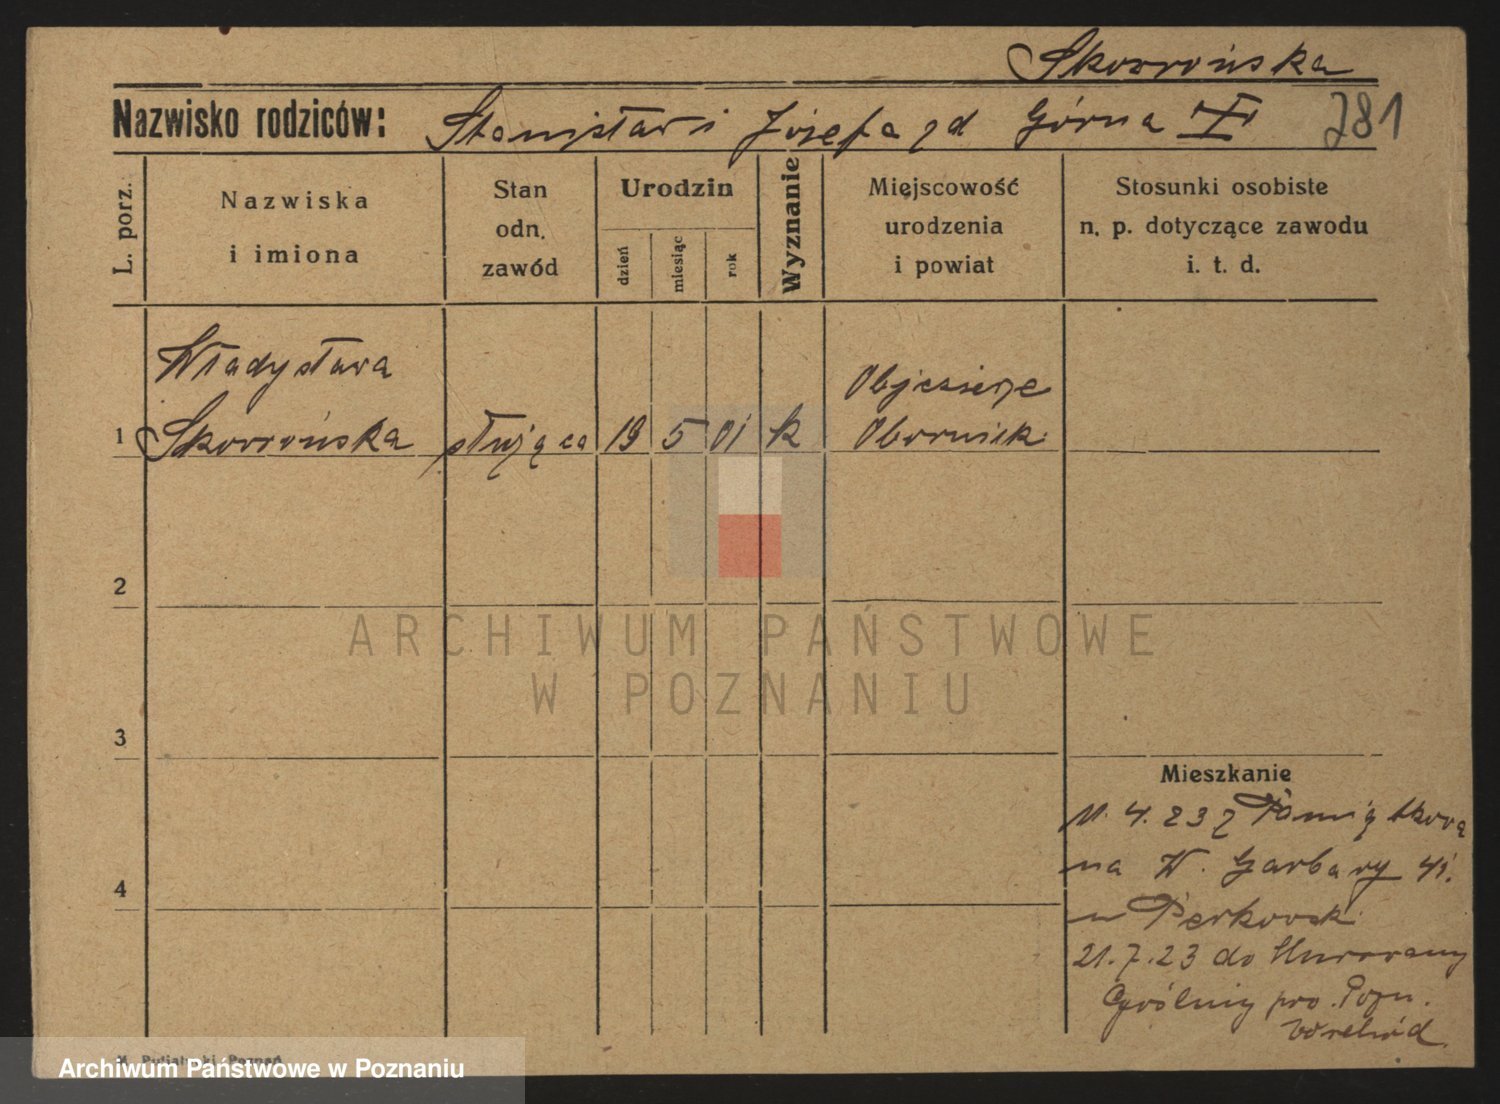 Skowrońska
Nazwisko rodziców: Stanisław i Józefa zd Górna 281
L. porz.
Nazwiska
i imiona
Stan
odn.
zawód
Urodzin
dzień
miesiąc
rok
Wyznanie
Miejscowość
urodzenia
i powiat
Stosunki osobiste
n. p. dotyczące zawodu
i. t. d.
Władysława
Objezierze
1 Skowrońska służąca 19 5 01 k Obornik
2
ARCHIWUM PAŃSTWOWE
W POZNANIU
3
Mieszkanie
11. 4. 23 z Pamiątkowa
4 na W. Garbary 41.
u
21. 7. 23 do
pow. Pozn.
wschód
Poznań
Archiwum Państwowe w Poznaniu